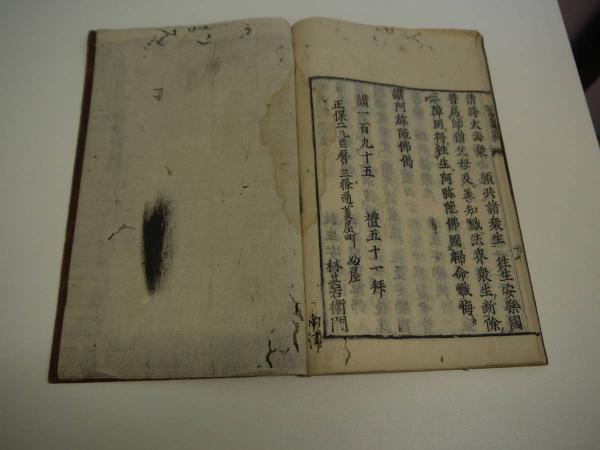 清淨大海衆　願共諸衆生　往生安樂國
普爲師僧父母及善知識法界衆生斷除
三障同得往生阿弥陀佛國歸命懺悔
讃阿弥陀佛偈
讃一百九十五　禮五十一拜
正保二 酉曆 三條通菱屋町 ぬ屋
林甚右衛門